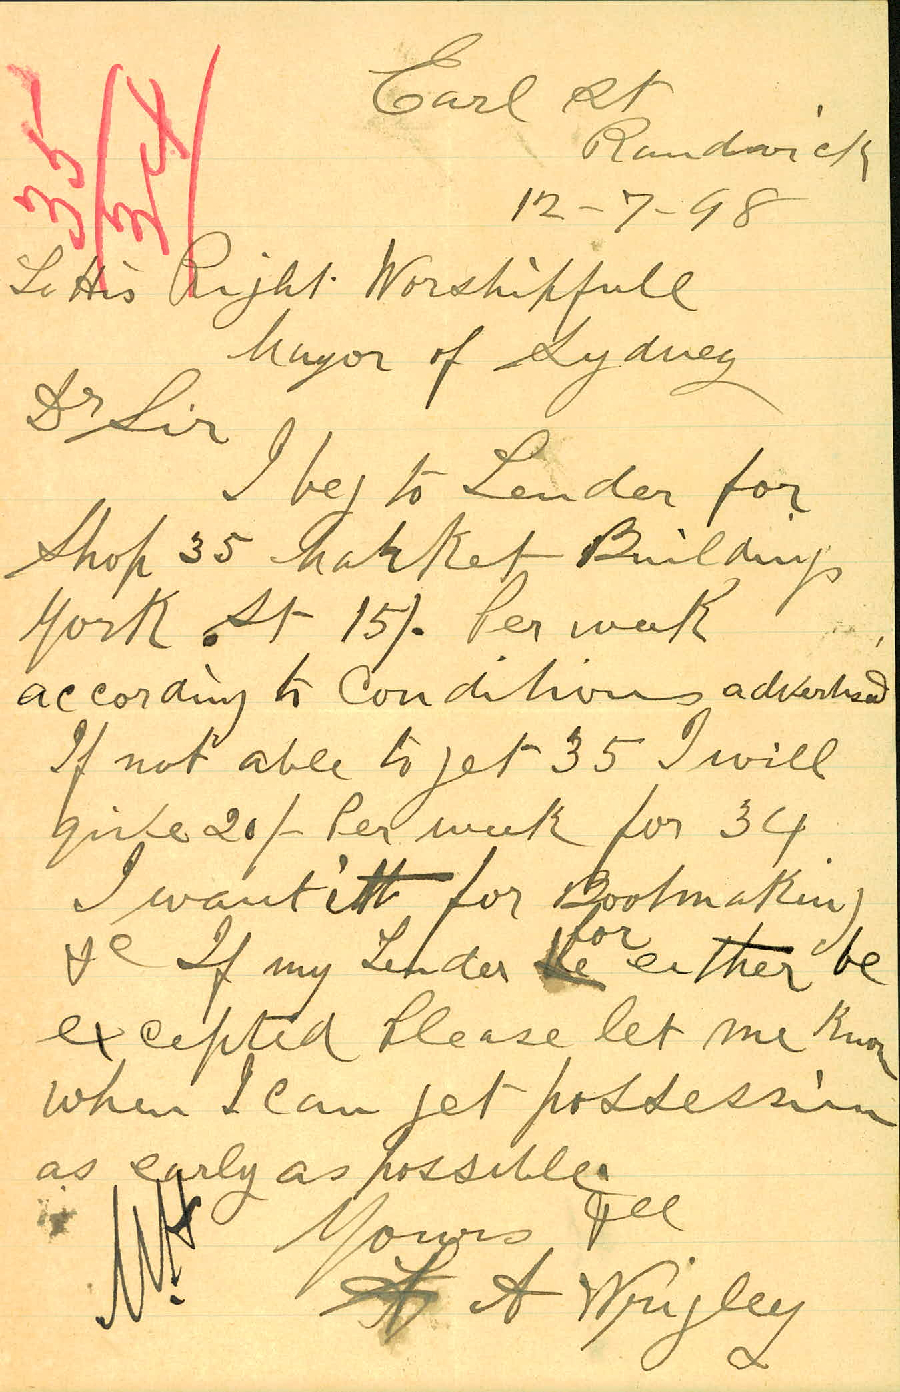 35/
34/
Earl St
Randwick
12-7-98
To His Right Worshipfull
Mayor of Sydney
Dr Sir
I beg to Tender for
Shop 35 Market Buildings
York St 15/- Per week
according to Conditions advertised
If not able to get 35 I will
give 20/- Per week for 34
I want it for Bootmaking
&c If my Tender for either be
excepted Please let me know
when I can get possession
as early as possible.
Yours &cc
A Wrigley